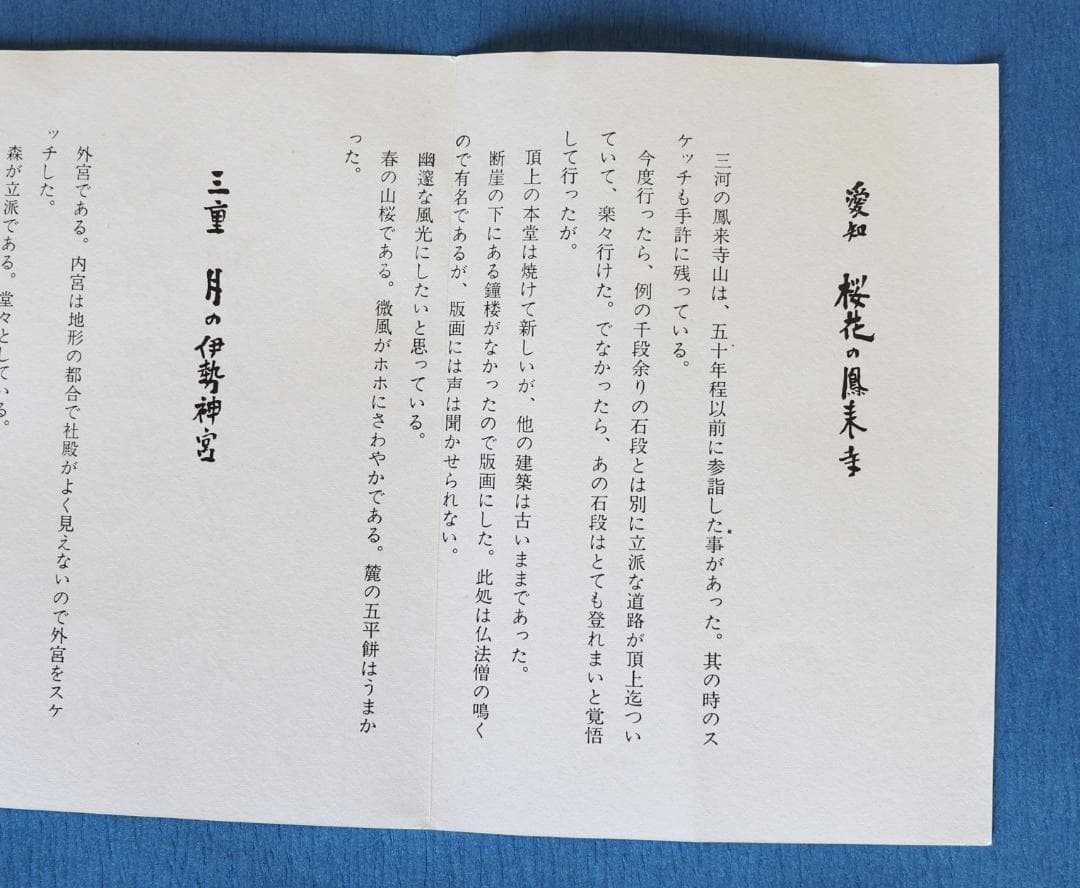 愛知　桜花の鳳来寺
三河の鳳来寺山は、五十年程以前に参詣した事があった。其の時のス
ケッチも手許に残っている。
今度行ったら、例の千段余りの石段とは別に立派な道路が頂上迄つい
ていて、楽々行けた。でなかったら、あの石段はとても登れまいと覚悟
して行ったが。
頂上の本堂は焼けて新しいが、他の建築は古いままであった。
断崖の下にある鐘楼がなかったので版画にした。此処は仏法僧の鳴く
ので有名であるが、版画には声は聞かせられない。
幽邃な風光にしたいと思っている。
春の山桜である。微風がホホにさわやかである。麓の五平餅はうまか
った。
三重　月の伊勢神宮
外宮である。内宮は地形の都合で社殿がよく見えないので外宮をスケ
ッチした。
森が立派である。堂々としている。